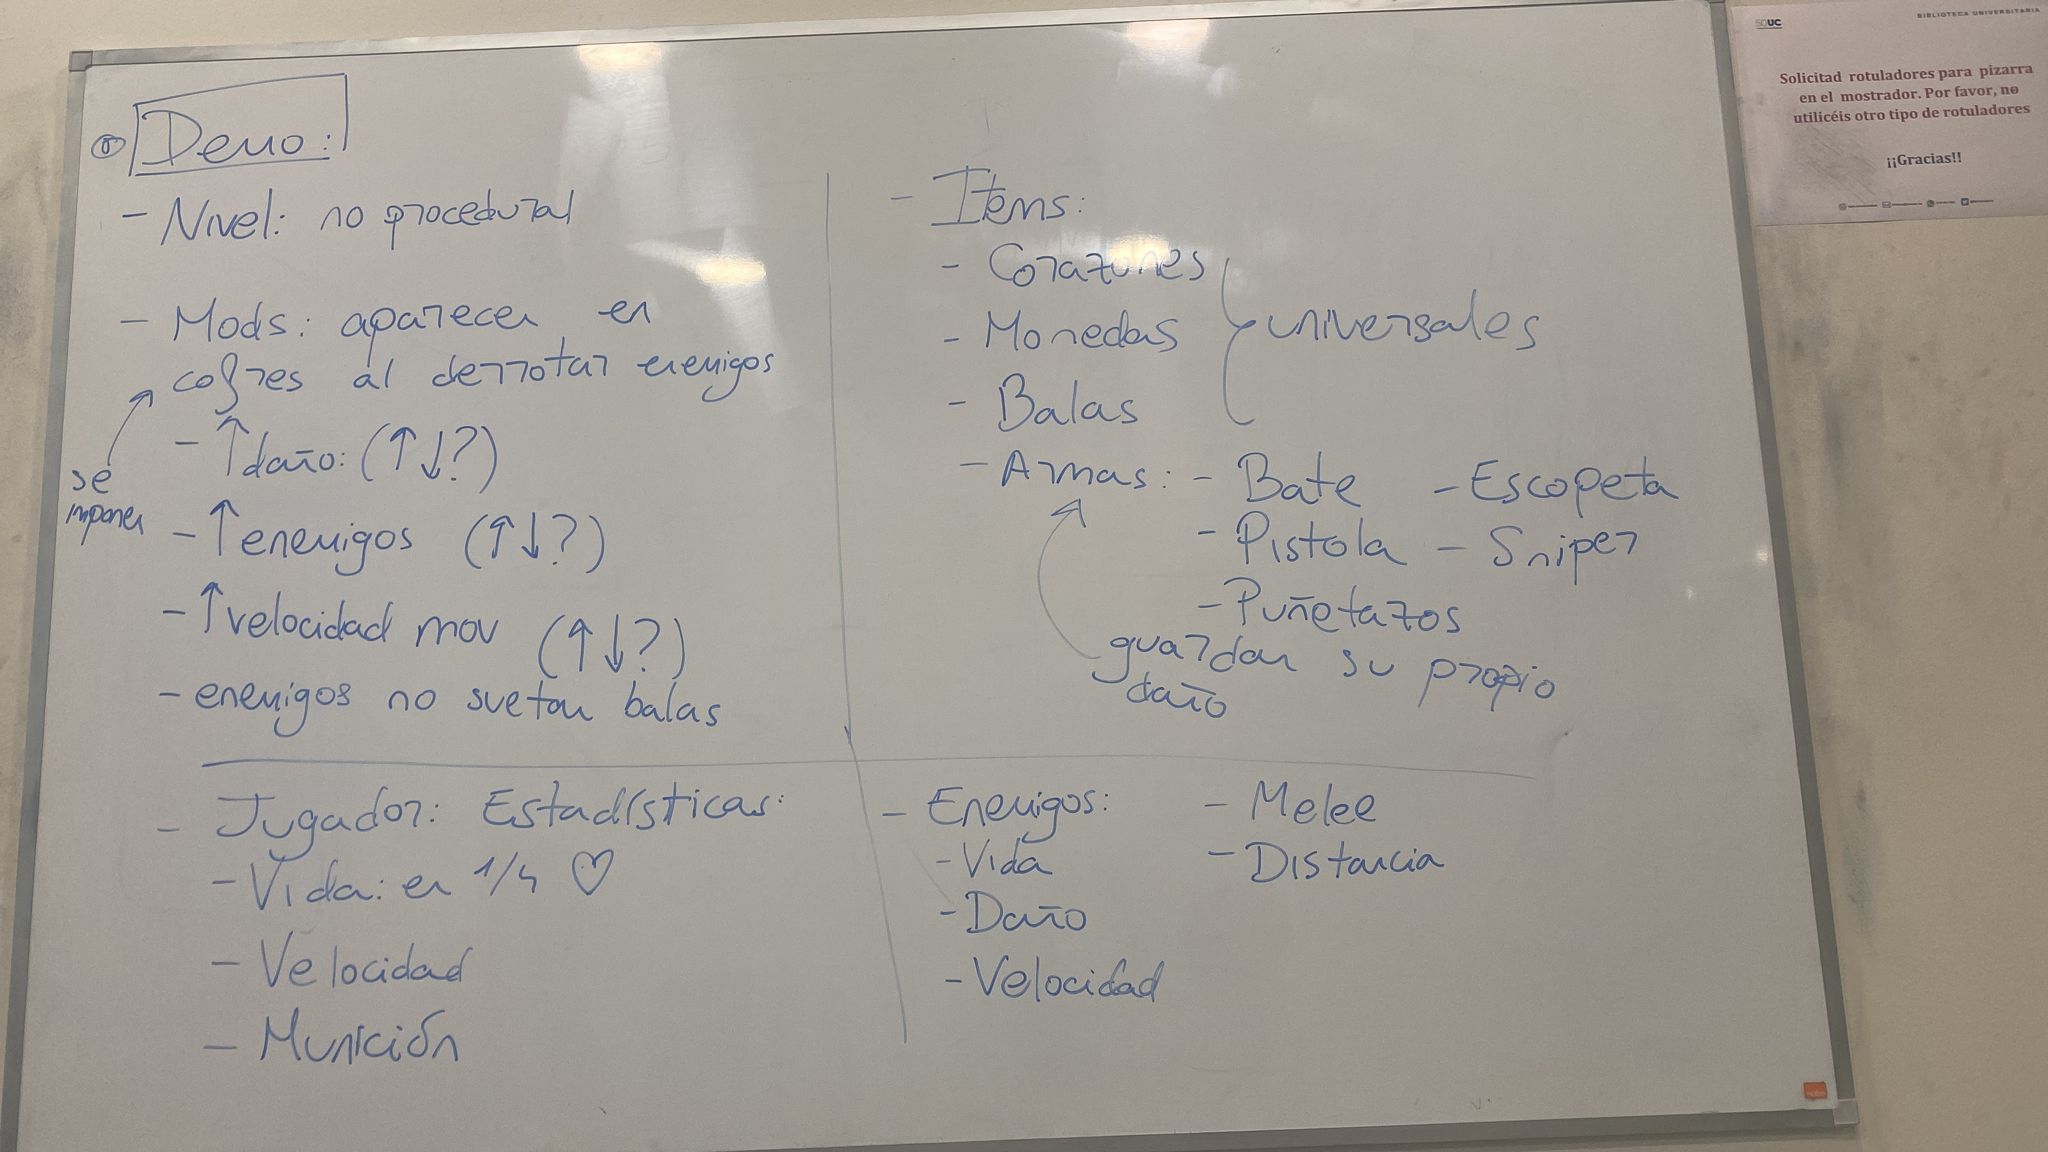 Demo:
- Nivel: no procedural
- Mods: aparecen en
cofres al derrotar enemigos
se
imponen
- ↑ daño: (↑↓?)
- ↑ enemigos (↑↓?)
- ↑ velocidad mov (↑↓?)
- enemigos no sueltan balas
- Items:
- Corazones
- Monedas
- Balas
universales
- Armas: - Bate - Escopeta
- Pistola - Sniper
- Puñetazos
guardan su propio
daño
- Jugador: Estadísticas:
- Vida: en 1/4 ♡
- Velocidad
- Munición
- Enemigos: - Melee
- Vida - Distancia
- Daño
- Velocidad
BIBLIOTECA UNIVERSITARIA
Solicitad rotuladores para pizarra
en el mostrador. Por favor, no
utilicéis otro tipo de rotuladores
¡¡Gracias!!